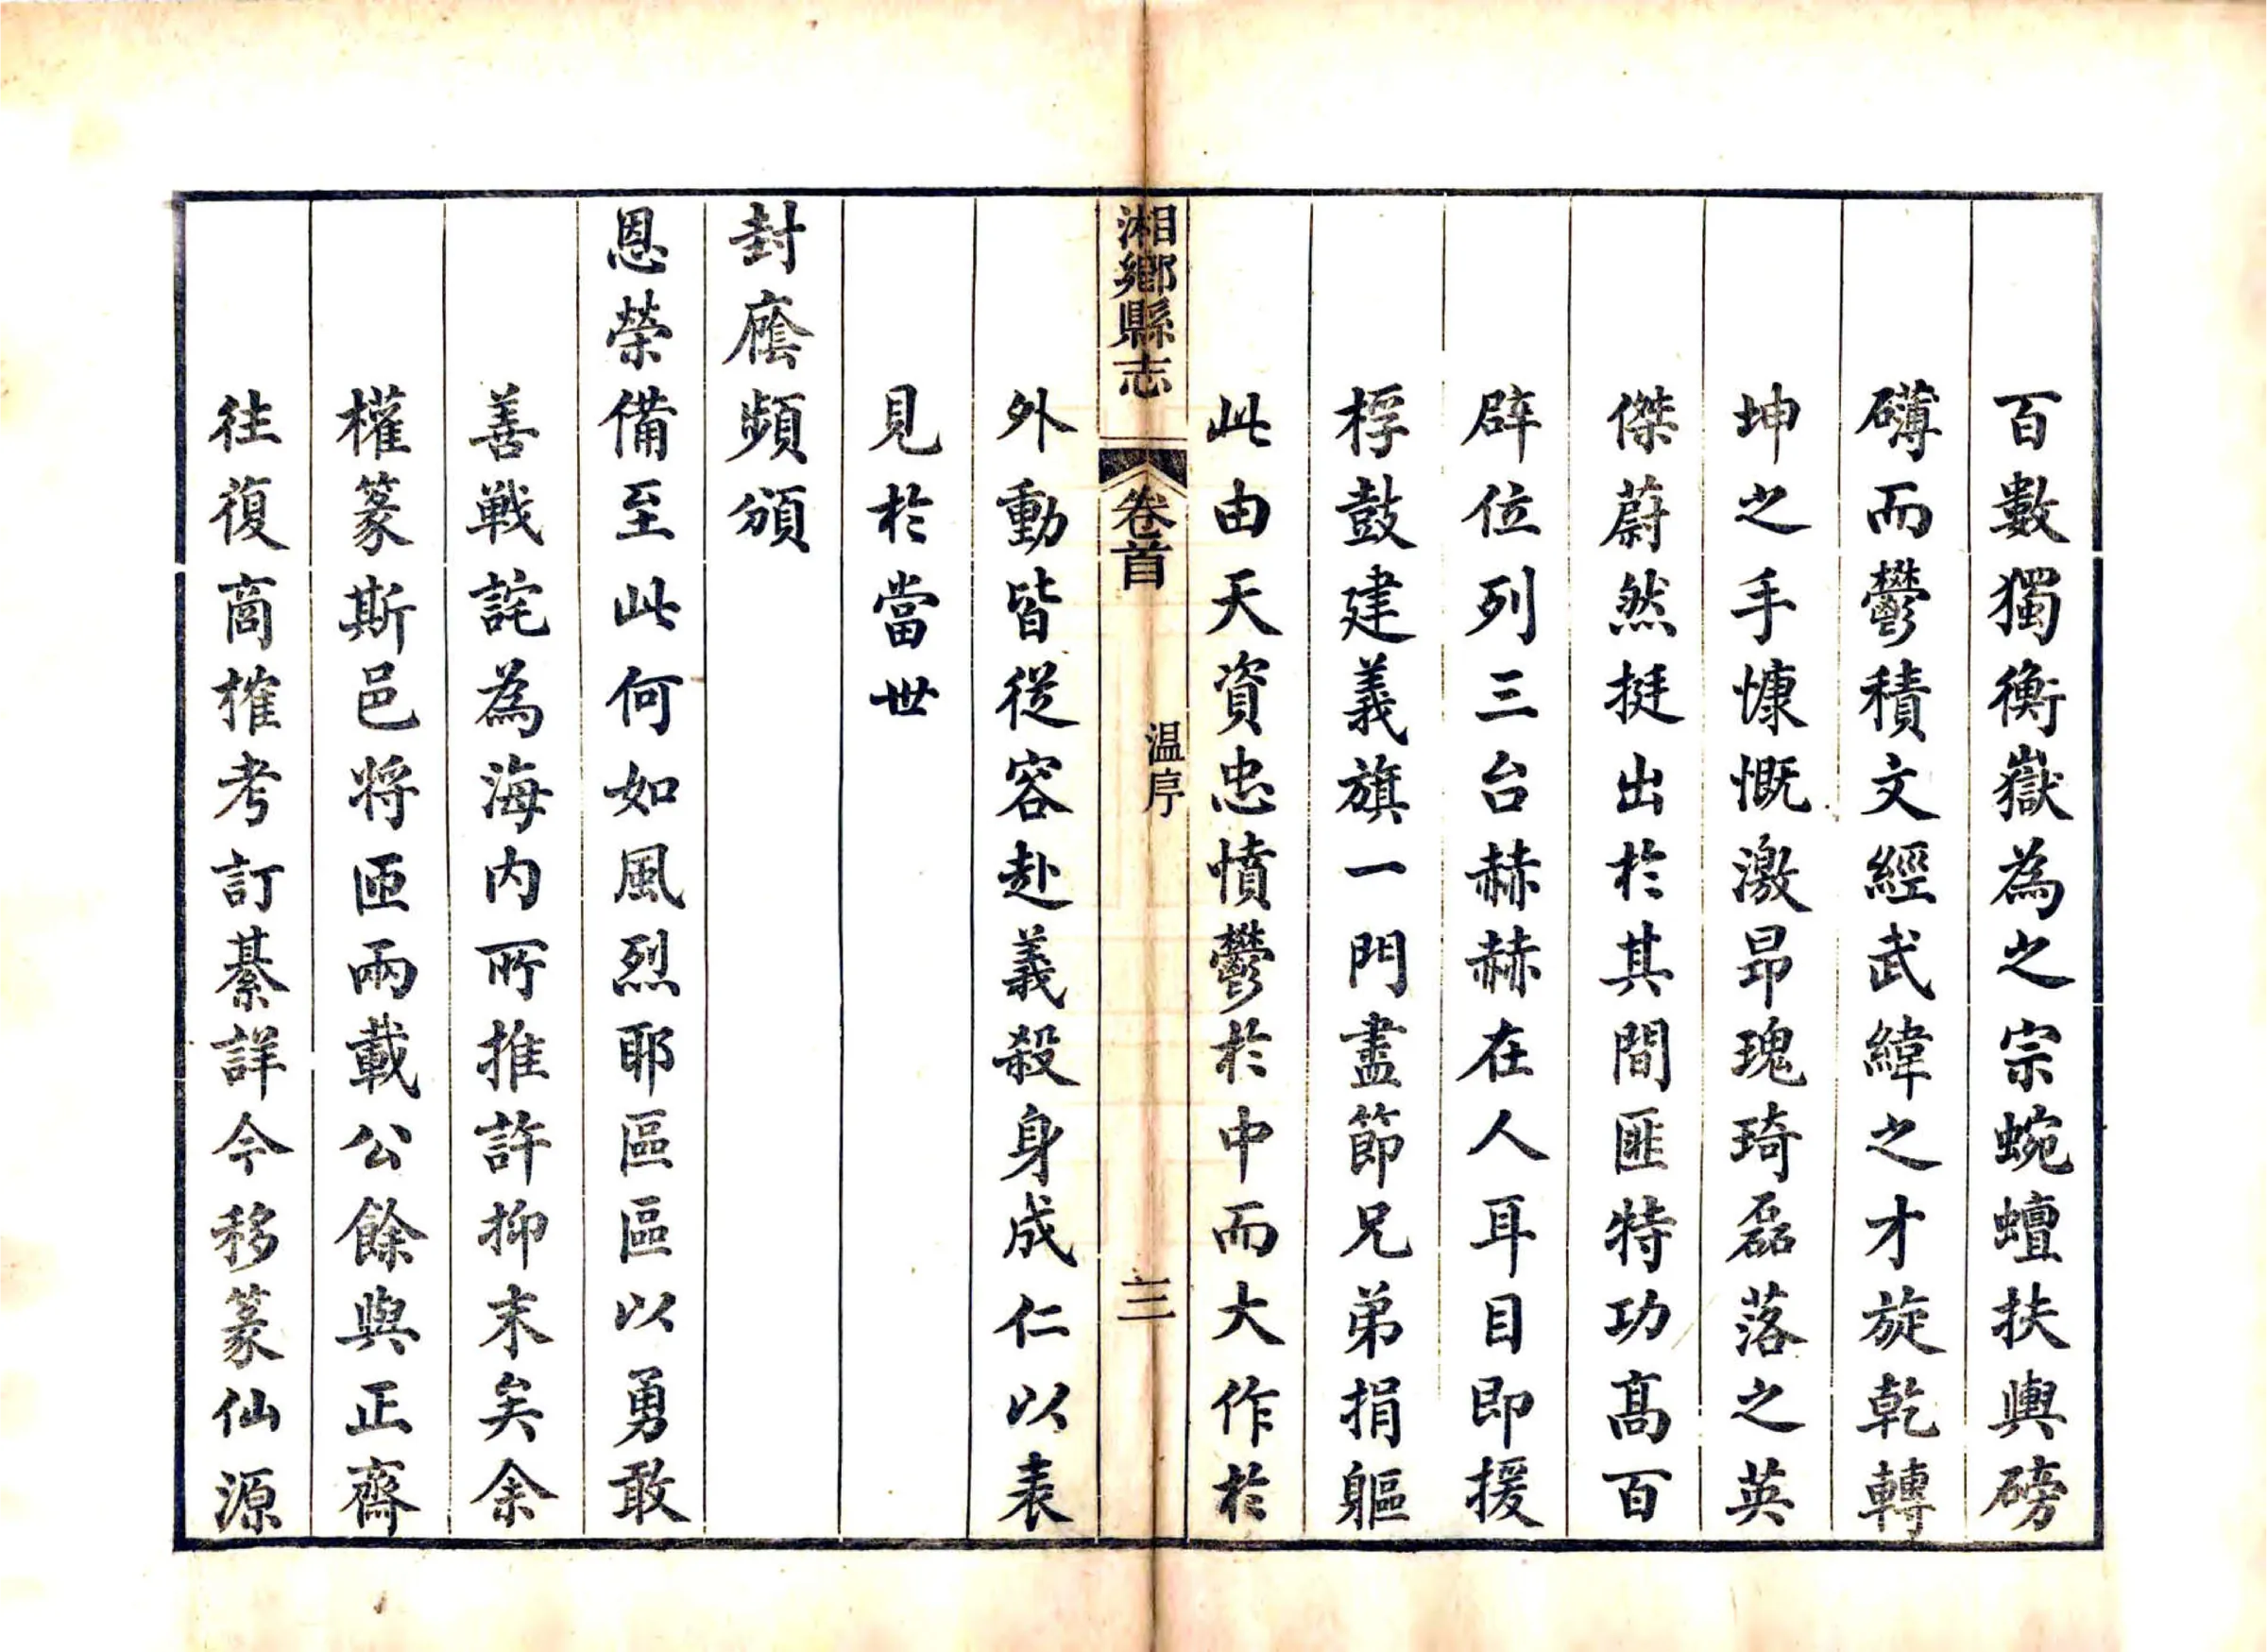 百數獨衡嶽為之宗蜿蟺扶輿磅
礴而鬱積文經武緯之才旋乾轉
坤之手慷慨激昂瑰琦磊落之英
傑蔚然挺出於其間匪特功髙百
辟位列三台赫赫在人耳目即援
桴鼓建義旗一門盡節兄弟捐軀
此由天資忠憤鬱於中而大作於
湘鄉縣志
卷首
温序
三
外動皆從容赴義殺身成仁以表
見於當世
封廕頻頒
恩榮備至此何如風烈耶區區以勇敢
善戰詫為海內所推許抑末矣余
權篆斯邑將匝兩載公餘與正齋
往復商榷考訂綦詳今移篆仙源